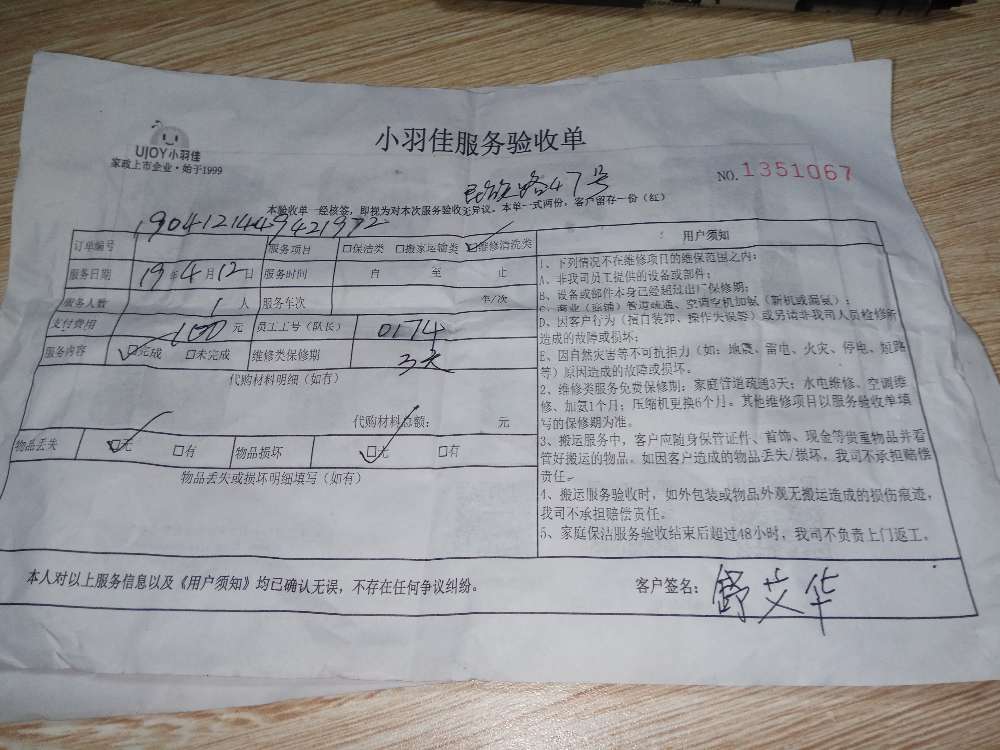 UJOY小羽佳
家政上市企业·始于1999
小羽佳服务验收单
NO.1351067
路47号
本验收单一经核签，即视为对本次服务验收无异议。本单一式两份，客户留存一份（红）
1904121449421972
订单编号 服务项目 □保洁类 □搬家运输类 ☑维修清洗类
服务日期 19年4月12日 服务时间 自 至 止
服务人数 1人 服务车次 车/次
支付费用 100元 员工工号（队长） 0174
服务内容 ☑完成 □未完成 维修类保修期 3天
代购材料明细（如有）
代购材料总额： 元
物品丢失 ☑无 □有 物品损坏 ☑无 □有
物品丢失或损坏明细填写（如有）
用户须知
1、下列情况不在维修项目的维保范围之内：
A、非我司员工提供的设备或部件；
B、设备或部件本身已经超过出厂保修期；
C、商业（店铺）管道疏通、空调空机加氨（新机或漏氨）；
D、因客户行为（擅自装卸、操作失误等）或另请非我司人员检修所
造成的故障或损坏；
E、因自然灾害等不可抗拒力（如：地震、雷电、火灾、停电、短路
等）原因造成的故障或损坏。
2、维修类服务免费保修期：家庭管道疏通3天；水电维修、空调维
修、加氨1个月；压缩机更换6个月。其他维修项目以服务验收单填
写的保修期为准。
3、搬运服务中，客户应随身保管证件、首饰、现金等贵重物品并看
管好搬运的物品。如因客户造成的物品丢失/损坏，我司不承担赔偿
责任。
4、搬运服务验收时，如外包装或物品外观无搬运造成的损伤痕迹，
我司不承担赔偿责任。
5、家庭保洁服务验收结束后超过48小时，我司不负责上门返工。
本人对以上服务信息以及《用户须知》均已确认无误，不存在任何争议纠纷。
客户签名：舒艾华